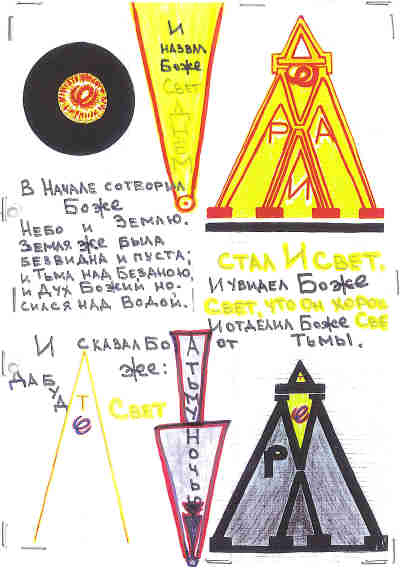 И
НАЗВАЛ
БОЖЕ
СВЕТ
ДНЕМ
Д
е
Р А
И
В НАЧАЛЕ СОТВОРИЛ
БОЖЕ
НЕБО И ЗЕМЛЮ.
ЗЕМЛЯ ЖЕ БЫЛА
БЕЗВИДНА И ПУСТА;
И ТЬМА НАД БЕЗДНОЮ,
И ДУХ БОЖИЙ НО-
СИЛСЯ НАД ВОДОЙ.
СТАЛ И СВЕТ.
И УВИДЕЛ БОЖЕ
СВЕТ, ЧТО ОН ХОРОШ
И ОТДЕЛИЛ БОЖЕ СВЕ
ОТ ТЬМЫ.
И СКАЗАЛ БО
ЖЕ:
ДА БУД
е Т
СВЕТ
А ТЬМУ НОЧЬЮ
е
Р